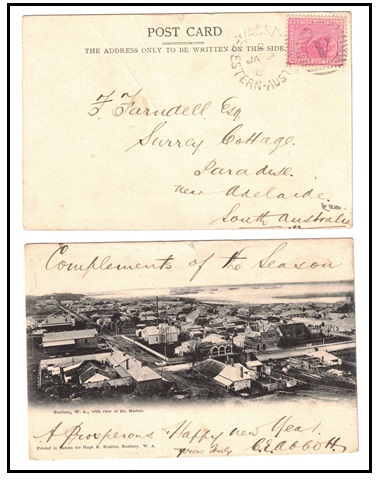 POST CARD
THE ADDRESS ONLY TO BE WRITTEN ON THIS SIDE.
JA
WESTERN-AUST
F. Farndell Esq
Surrey Cottage.
Paradise.
near Adelaide.
South Australia
Complements of the Season
Bunbury, W. A., with view of the Harbor.
A Prosperous, Happy new Year.
yours truly C.E. Abbott.
Printed in Saxony for Hugh B. Bunbury, W. A.